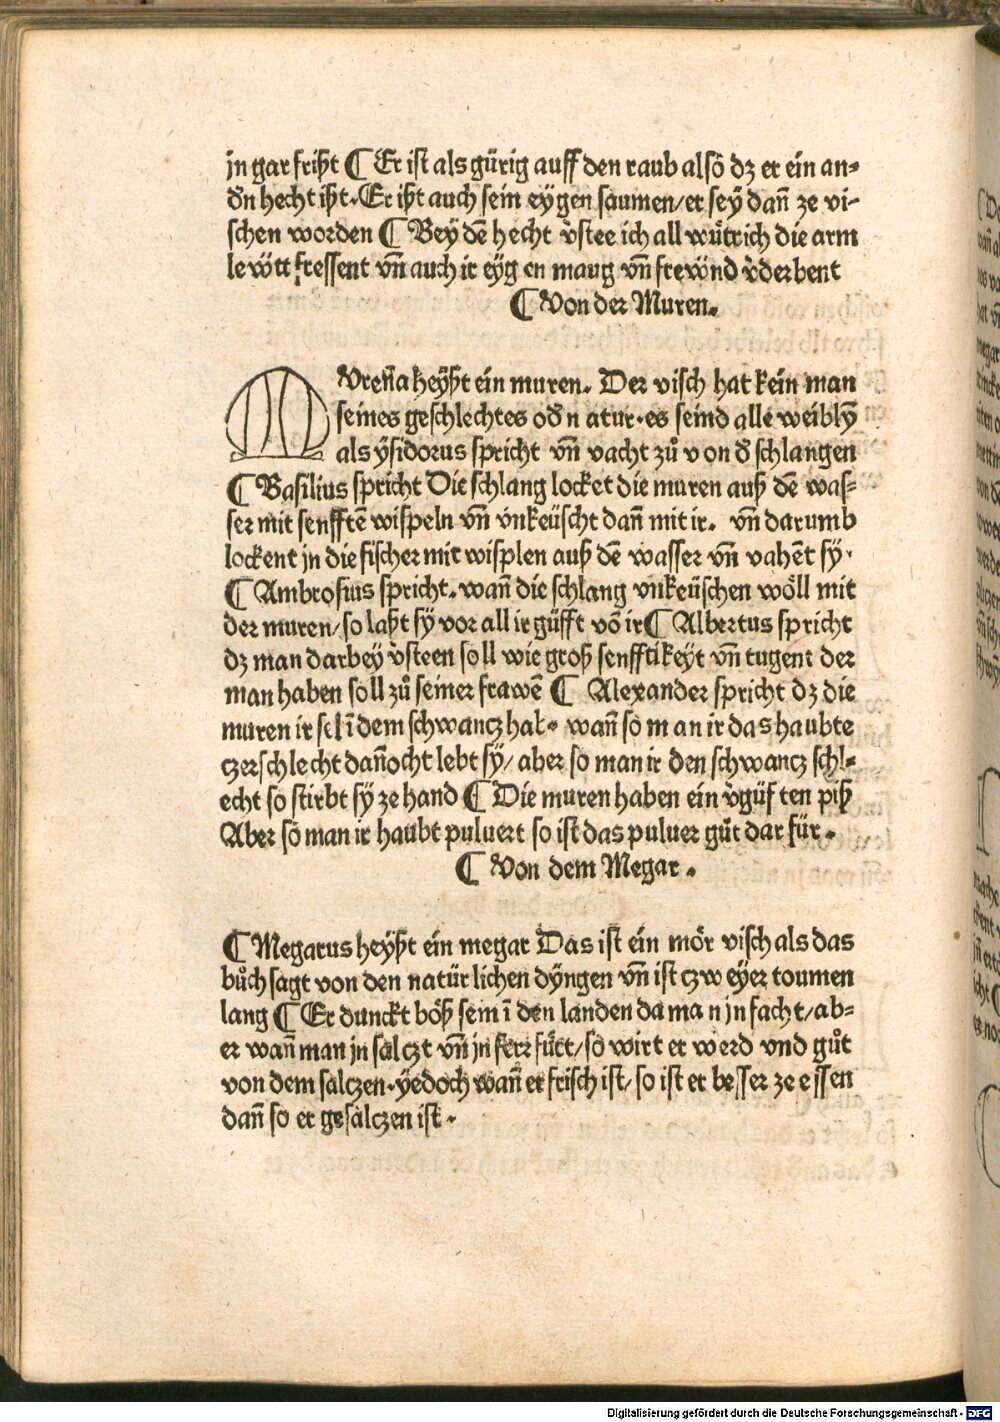 jn gar frißt ¶ Er ist als gürig auff den raub alsõ dz er ein an⸗
dn̄ hecht ißt. Er ißt auch sein eygen saumen/er seÿ dañ ze vi⸗
schen worden ¶ Beÿ dē hecht v̈stee ich all wuͤtrich die arm
lewͤtt fressent vn̄ auch ir eÿg en maug vn̄ frewͤnd v̈derbent
¶ Von der Muren.
MUreña heÿßt ein muren. Der visch hat kein man
seines geschlechtes od̄ n atur.es seind alle weiblÿ
als ÿsidorus spricht vn̄ vacht zuͦ v on d̄ schlangen
¶ Basilius spricht Die schlang locket die muren auß dē was⸗
ser mit senfftē wispeln vn̄ vnkeüscht dañ mit ir. vn̄ darumb
lockent jn die fischer mit wisplen auß dē wasser vn̄ vahēt sÿ.
¶ Ambrosius spricht. wañ die schlang vnkeüschen wöll mit
der muren/ so laßt sÿ vor all ir güfft vō ir ¶ Albertus spricht
dz man darbeÿ v̈steen soll wie groß senfftikeÿt vn̄ tugent der
man haben soll zuͦ seiner frawē ¶ Alexander spricht dz die
muren ir sel ī dem schwancz hab. wañ so m an ir das haubte
czerschlecht dañocht lebt sÿ/ aber so man ir den schwancz schl⸗
echt so stirbt sÿ ze hand ¶ Die muren haben ein v̈güf ten piß
Aber so man ir haubt puluert so ist das puluer guͦt dar für.
¶ Von dem Megar.
¶ Megarus heÿßt ein megar Das ist ein mör visch als das
buͦch sagt von den natürlichen dÿngen vn̄ ist czw eÿer toumen
lang ¶ Er dunckt böß sem ī den landen da ma n jn facht/ab⸗
er wañ man jn salczt vn̄ jn ferr fuͤrt/so wirt er werd vnd guͦt
von dem salczen.ÿedoch wañ er frisch ist/ so ist er besser ze essen
dañ so er gesalczen ist.
Digitalisierung gefördert durch die Deutsche Forschungsgemeinschaft - DFG